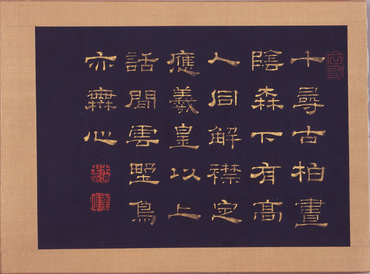 十尋古柏晝
陰森下有高
人同解襟定
應羲皇以上
話閒雲墅鳥
亦無心